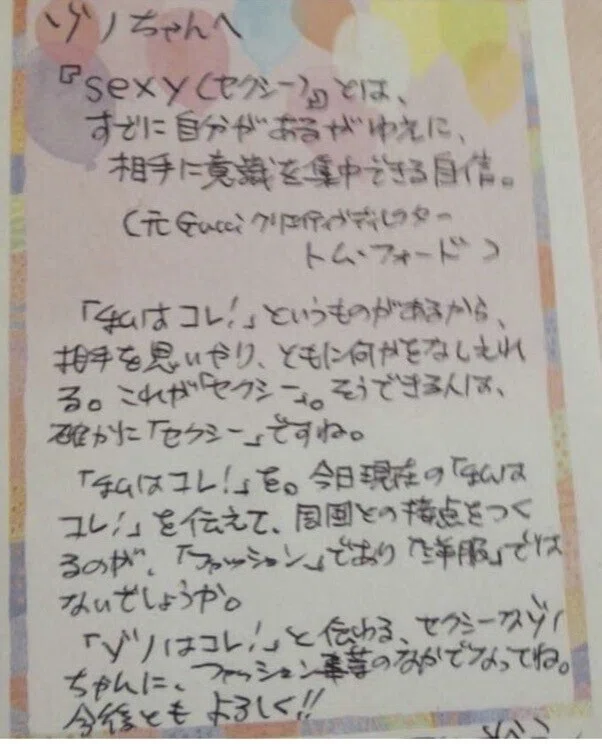 ゾノちゃんへ
『sexy(セクシー)』とは、
すでに自分があるがゆえに、
相手に意識を集中できる自信。
(元Gucciクリエイティヴディレクター
トム・フォード)
「私はコレ!」というものがあるから、
相手を思いやり、ともに何かをなしえれ
る。これが「セクシー」。そうできる人は、
確かに「セクシー」ですね。
「私はコレ!」を。今日現在の「私は
コレ!」を伝えて、周囲との接点をつく
るのが、「ファッション」であり「洋服」では
ないでしょうか。
「ゾノはコレ!」と伝わる、セクシーなゾノ
ちゃんに、ファッションのなかでなってね。
今後ともよろしく!!